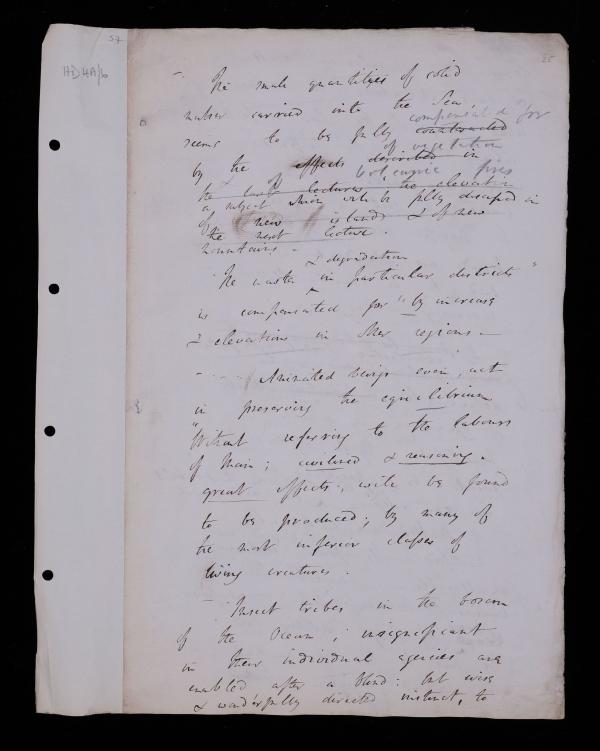 57
HD4A/6
25
— The small quantities of solid
matter carried into the Sea,
compensated for
seems to be fully counteracted
of vegetation
by the effects described in
of volcanic fires
the last lectures, the elevation
a subject which will be fully discussed in
of new islands & of new
the next lecture.
mountains. —
& degradation
"The waste in particular districts"
is compensated for "by increase
& elevations in other regions. —
Animated beings even, act
in preserving the equilibrium
"Without referring to the labours
of Man; civilised & reasoning.
great effects, will be found
to be produced; by many of
the most inferior classes of
living creatures.
— Insect tribes in the bosom
of the Ocean; insignificant
in their individual agencies are
enabled after a blind: but wise
& wonderfully directed instinct, to